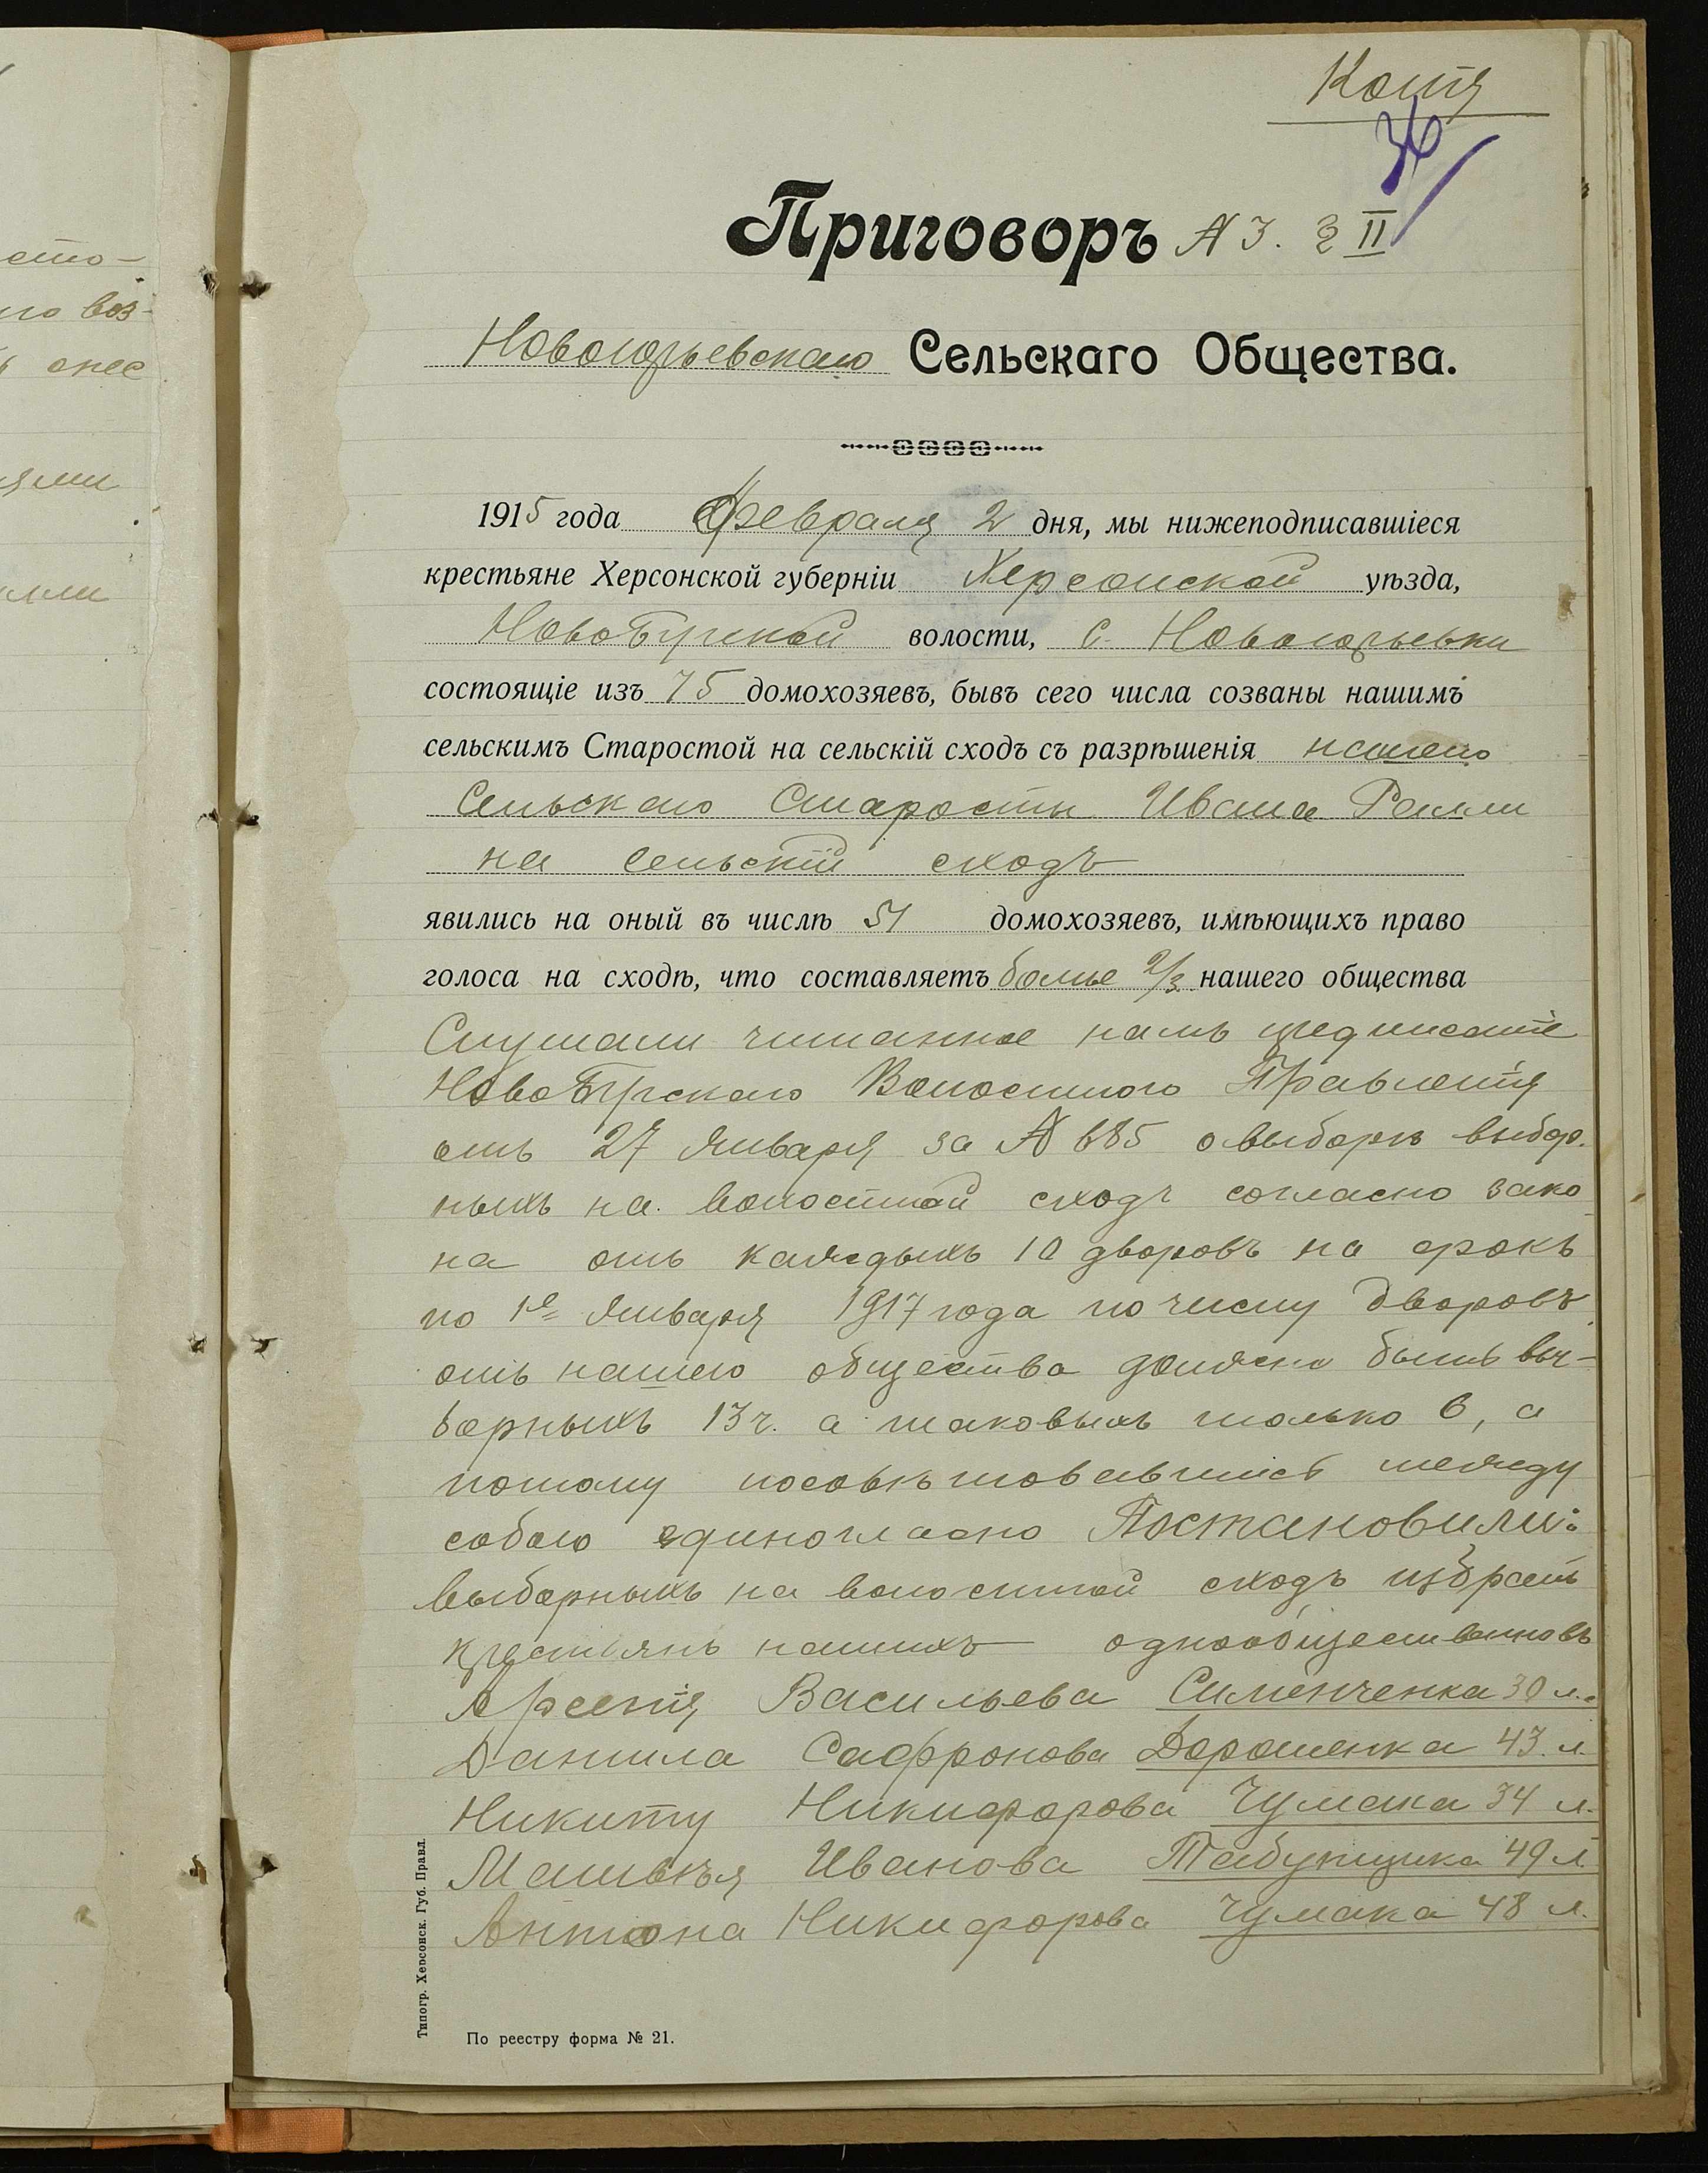 Копія
36
Приговоръ № 3. 2 II
Новоюрьевскаго Сельскаго Общества.
1915 года Февраля 2 дня, мы нижеподписавшіеся
крестьяне Херсонской губерніи Херсонской уѣзда,
НовоБугской волости, с. Новоюрьевки
состоящіе изъ 75 домохозяевъ, бывъ сего числа созваны нашимъ
сельскимъ Старостой на сельскій сходъ съ разрѣшенія нашего
Сельскаго Старосты Ивана
на сельскій сходъ
явились на оный въ числѣ 51 домохозяевъ, имѣющихъ право
голоса на сходѣ, что составляетъ болѣе 2/3 нашего общества
Слушали читанное намъ предписаніе
НовоБугскаго Волостного Правленія
отъ 27 Января за № 685 о выборѣ выбор.
ныхъ на волостной сходъ согласно зако
на отъ каждыхъ 10 дворовъ на срокъ
по 1е Января 1917 года по числу дворовъ
отъ нашего общества должно быть вы-
борныхъ 13 ч. а таковыхъ только 6, а
потому посовѣтовавшись между
собою единогласно Постановили:
выборныхъ на волостной сходъ избрать
крестьянъ нашихъ однообщественновъ
Арсенія Васильева Сименченка 30 л.
Данила Сафронова Дорошенка 43 л.
Никиту Никифорова Чумака 34 л.
Матвѣя Иванова Табунщика 49 л.
Антона Никифорова Чумака 48 л.
Типогр. Херсонск. Губ. Правл.
По реестру форма № 21.